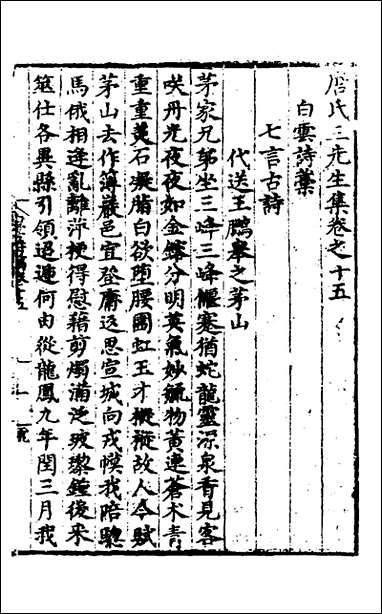 唐氏三先生集卷之十五
白雲詩藁
七言古詩
代送王鵬舉之茅山
茅家兄弟坐三峰三峰偃蹇猶蛇龍靈深泉香見客
咲丹光夜夜如金鎔分明英氣妙毓物黃連蒼朮青
重重美石凝脂白欲墮腰圍虹玉才摐摐故人今賦
茅山去作簿嚴邑宜登庸逸思宣城向戎幙我陪驄
馬俄相逢亂離萍梗得慰藉剪燭滿泛玻瓈鍾後來
筮仕各異縣引領迢遞何由從龍鳳九年閏三月我